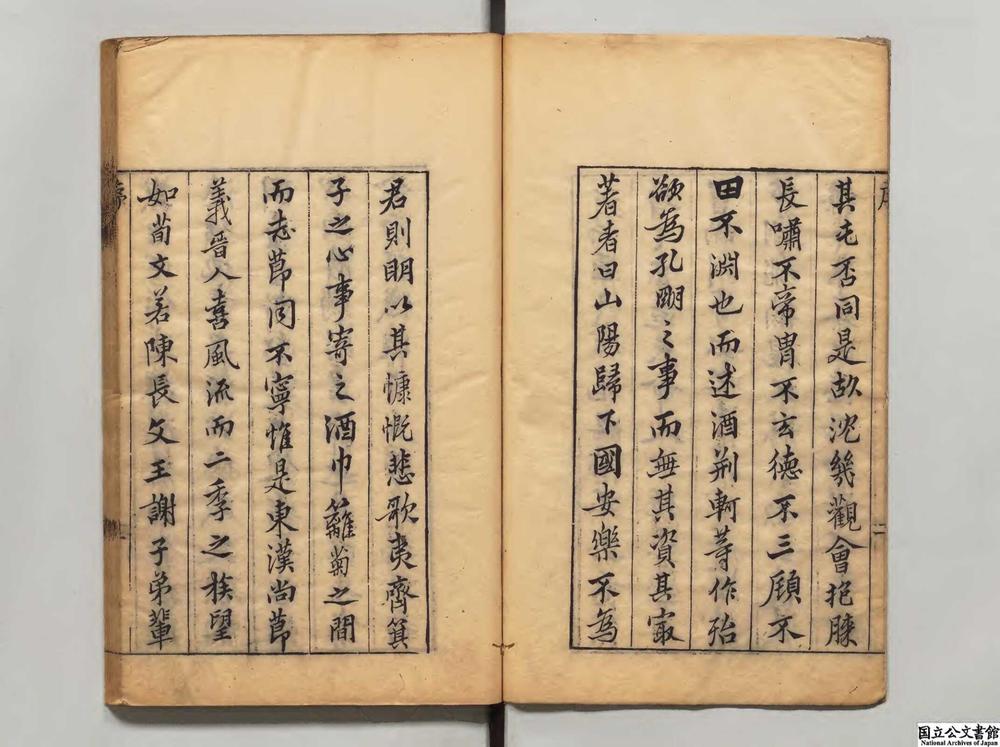 其屯否同是故沈幾觀會抱膝
長嘯不帝胄不玄德不三顧不
田不淵也而述酒荆軻等作殆
欲為孔明之事而無其資其最
著者曰山陽歸下國安樂不為
君則明以其慷慨悲歌夷齊箕
子之心事寄之酒巾籬菊之間
而志節同不寧惟是東漢尚節
義晉人喜風流而二季之族望
如荀文若陳長文王謝子弟輩
序
二
国立公文書館
National Archives of Japan